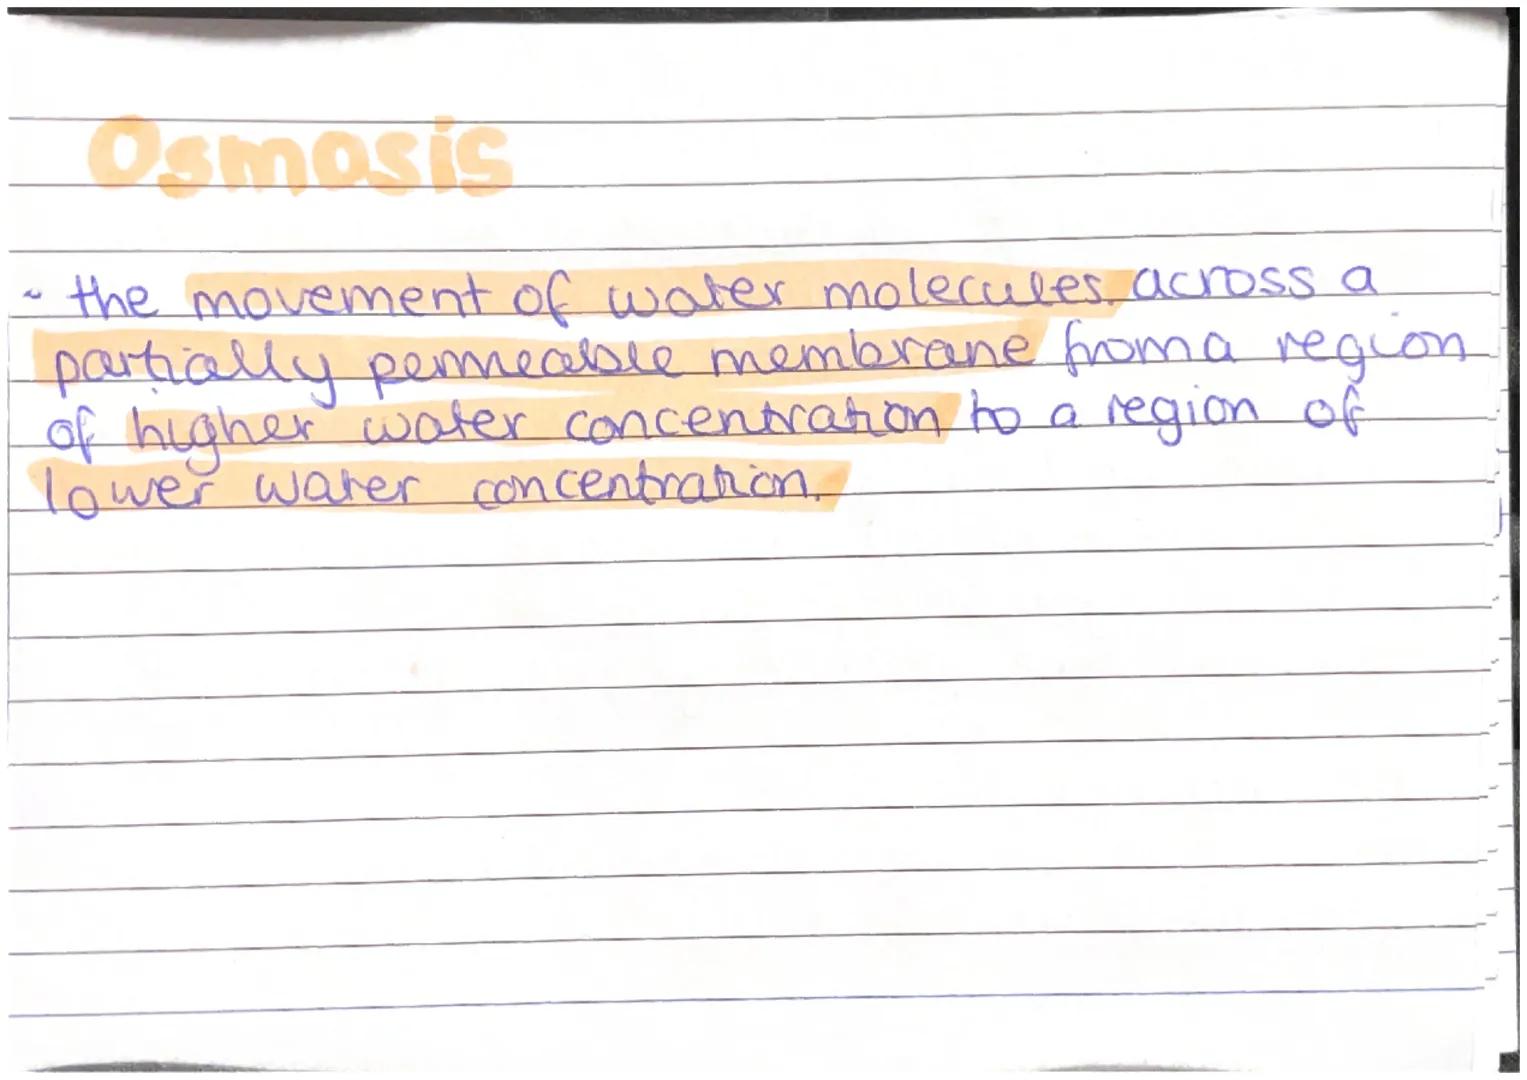 Osmosis
- the movement of water molecules across a
partially permeable membrane from a region
of higher water concentration to a region of
lower water concentration.